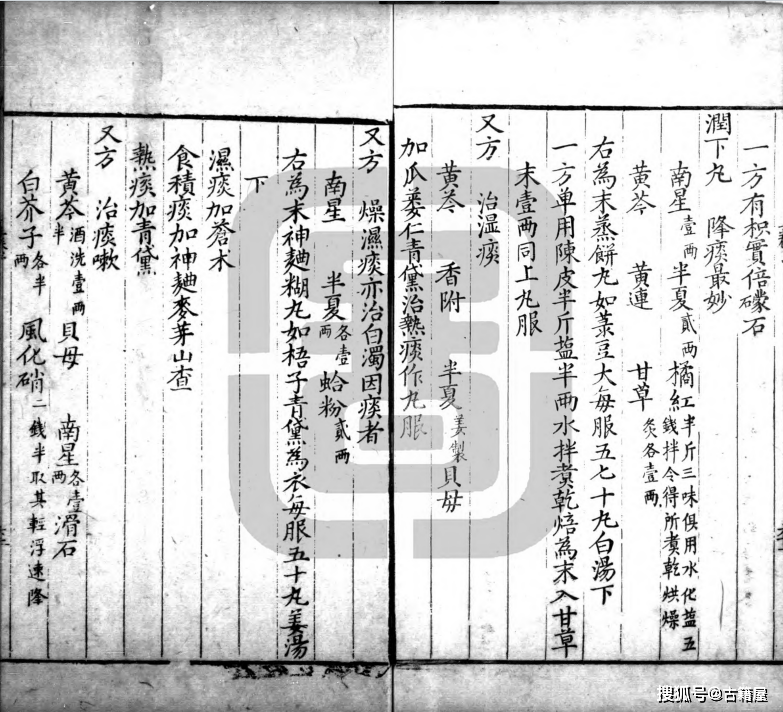 一方有枳實倍礞石
潤下丸　降痰最妙
南星壹兩半夏貳兩橘紅半斤三味俱用水化盐五錢拌令得所煑乾烘燥
黃芩　黃連　甘草炙各壹兩
右為末蒸餅丸如菉豆大每服五七十丸白湯下
一方单用陳皮半斤盐半兩水拌煑乾焙為末入甘草
末壹兩同上丸服
又方　治湿痰
黃芩　香附　半夏姜製貝母
加瓜蔞仁青黛治熱痰作丸服
又方　燥濕痰亦治白濁因痰者
南星　半夏各壹兩　蛤粉貳兩
右為末神麯糊丸如梧子青黛為衣每服五十丸姜湯
下
濕痰加蒼术
食積痰加神麯麥芽山查
熱痰加青黛
又方　治痰嗽
黃芩酒洗壹兩半貝母　南星各壹兩滑石
白芥子各半兩　風化硝二錢半取其輕浮速降
搜狐号@古籍屋